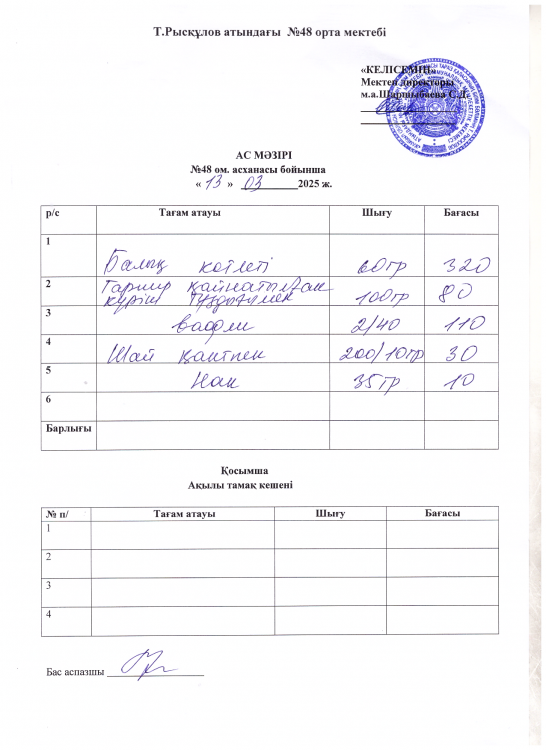 Т.Рысқұлов атындағы №48 орта мектебі
«КЕЛІСЕМІН»
Мектеп директоры
м.а.Шаршыбаева С.Д.
АС МӘЗІРІ
№48 ом. асханасы бойынша
« 13 » 03 2025 ж.
р/с Тағам атауы Шығу Бағасы
1 Балық котлеті 60гр 320
2 Гарнир қайнатылған
күріш тұздықпен 100гр 80
3 вафли 2/40 110
4 Шай қантпен 200/10гр 30
5 Нан 35гр 10
6
Барлығы
Қосымша
Ақылы тамақ кешені
№ п/ Тағам атауы Шығу Бағасы
1
2
3
4
Бас аспазшы